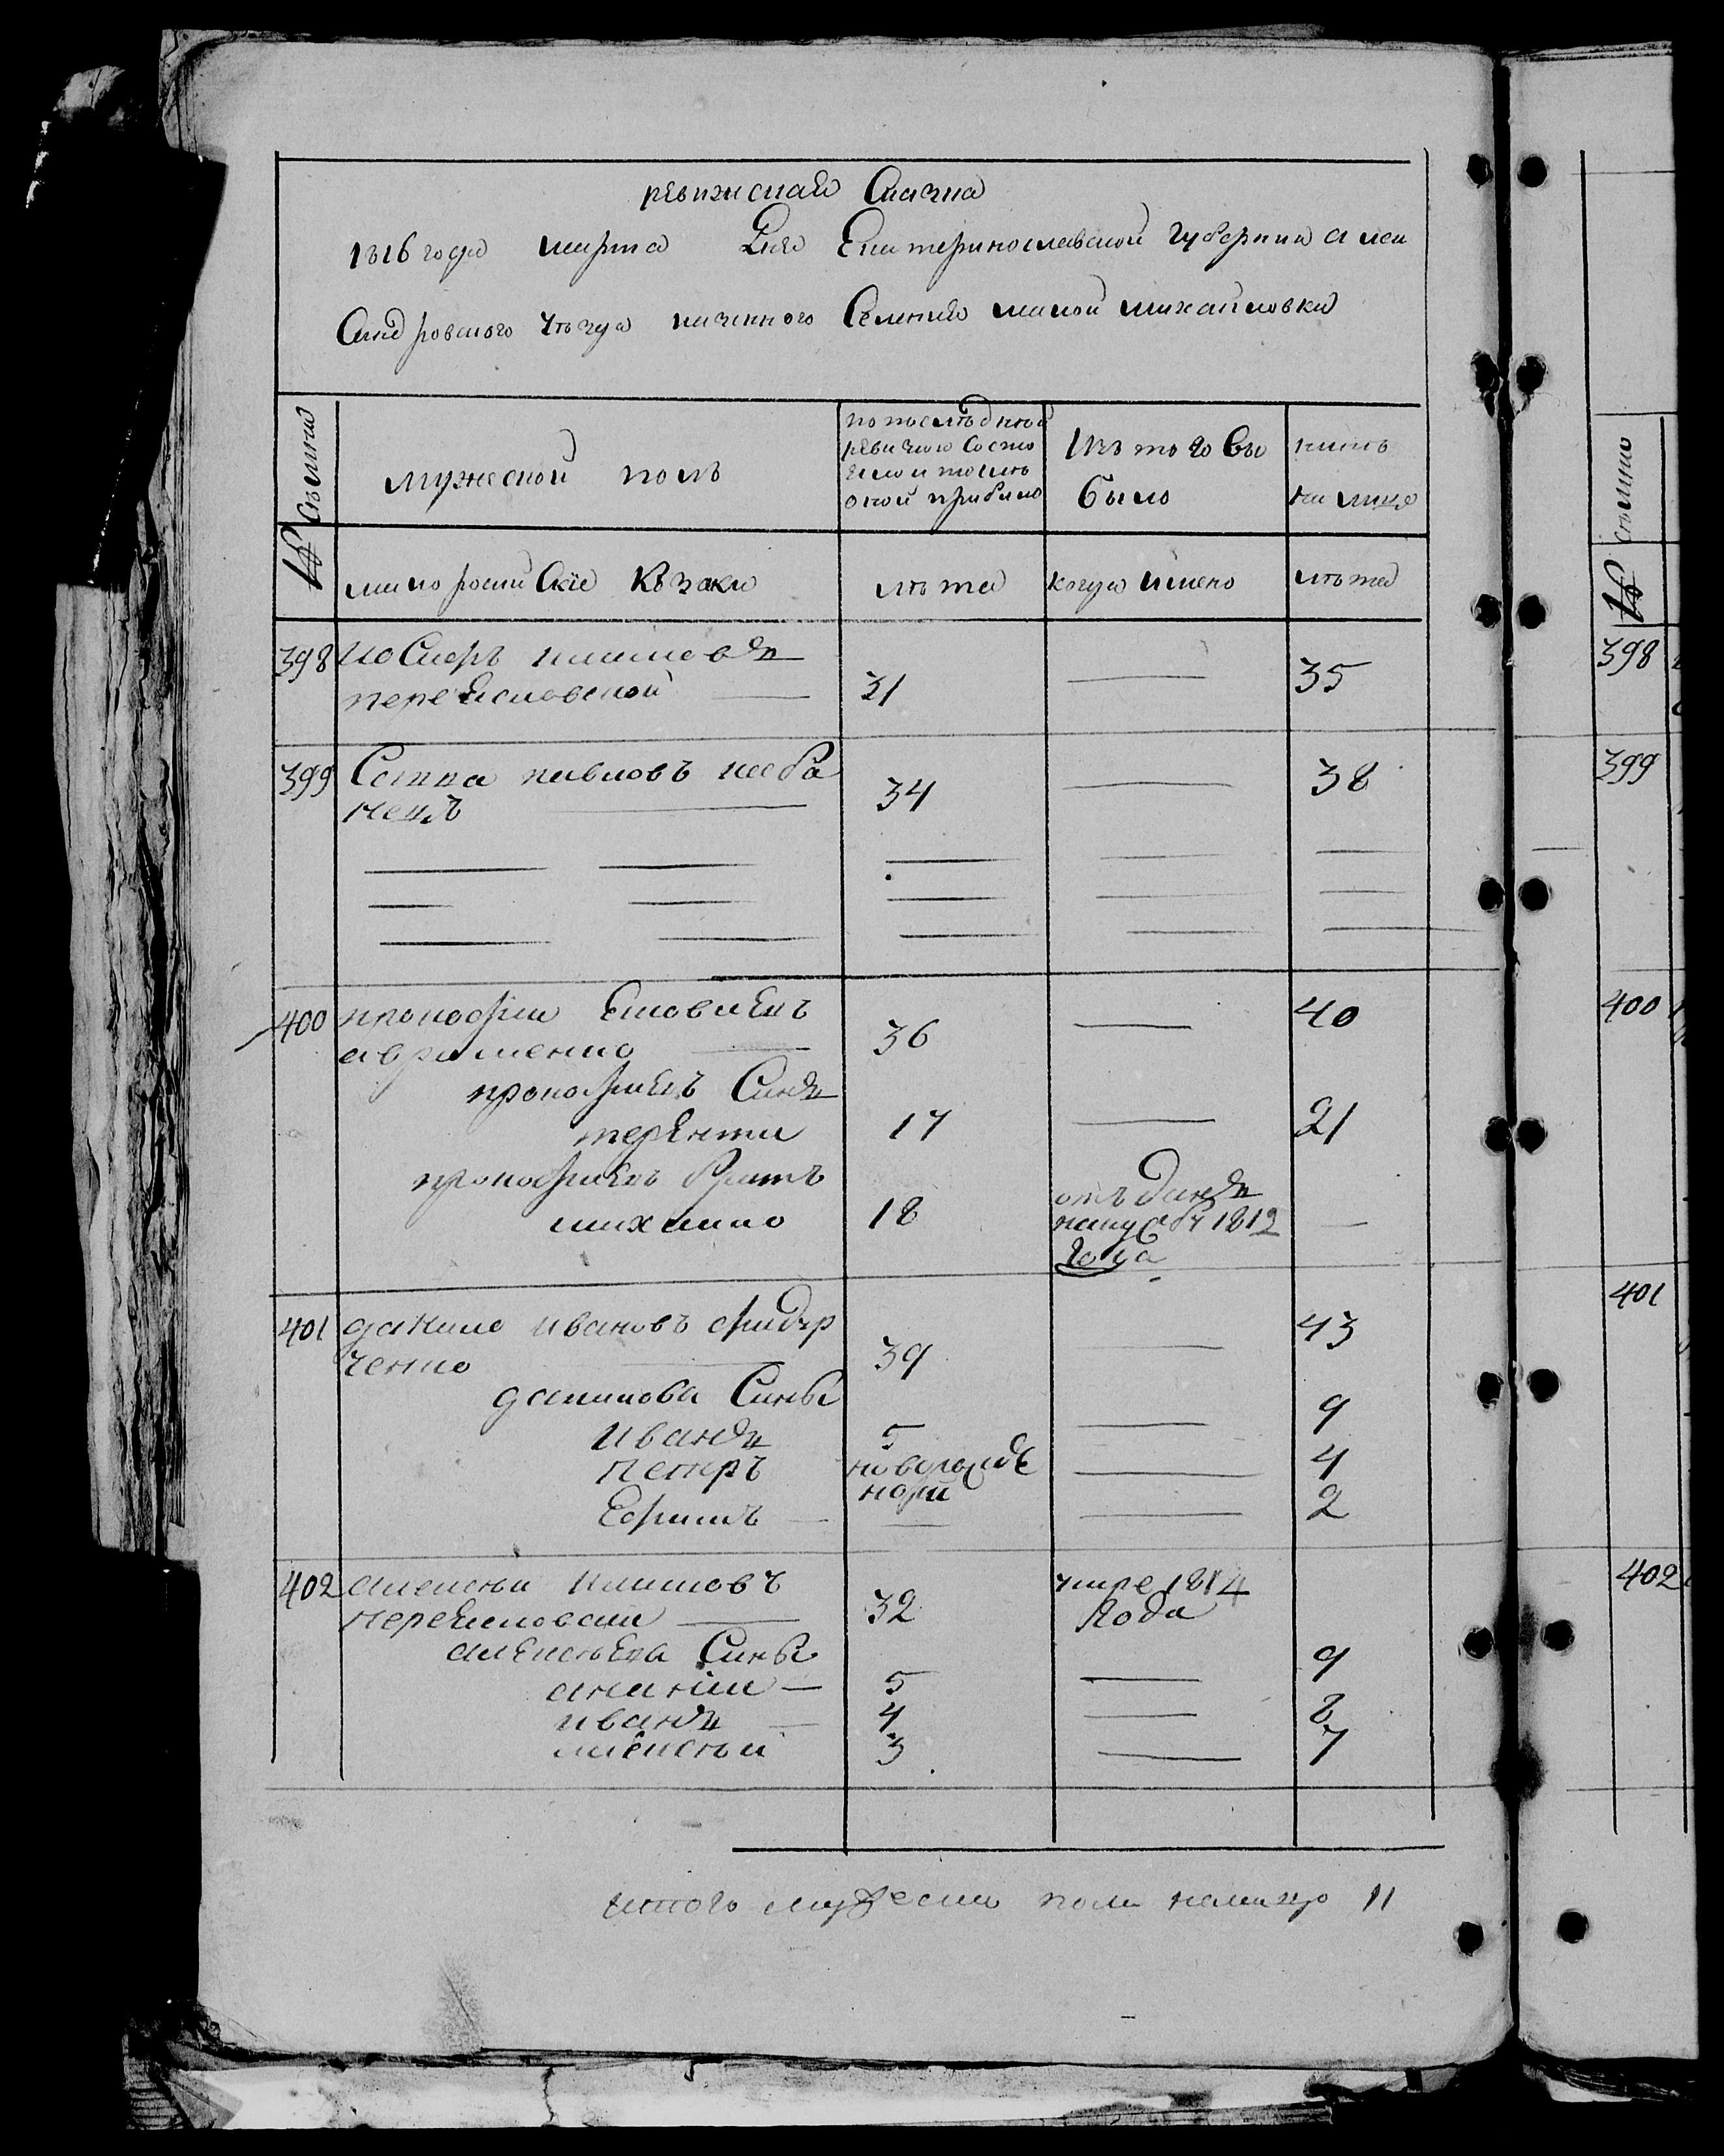 ревижская Скаска
1816 года марта Дня Екатеринославской губернии алек
Сандровского уѣзда казенного Селения малой михайловки
№ Семьи
мужеской полъ
по последней
ревизии состо
яло и после
оной прибыло
Изъ того вы
было
нынѣ
на лицо
малоросийские казаки
лѣта
когда имено
лѣта
398 иосифъ климовъ
переясловской 31 — 35
399 павловъ 34 — 38
400 прокофии
авраменко 36 — 40
прокофиевъ Синъ
терентии 17 — 21
прокофиевъ братъ
михаило 18 отъданъ
1812
года —
401 данило ивановъ
ченко 39 — 43
данилова Синьы
иванъ 5 — 9
петръ новорожде — 4
Ефимъ ной — 2
402 алексѣи климовъ
переясловски 32 умре 1814
года
алексѣева Синьы
ананiи — 5 — 9
иванъ — 4 — 8
алексѣй 3 — 7
итого мужеска пола налицо 11
семьи
№
398
399
400
401
402